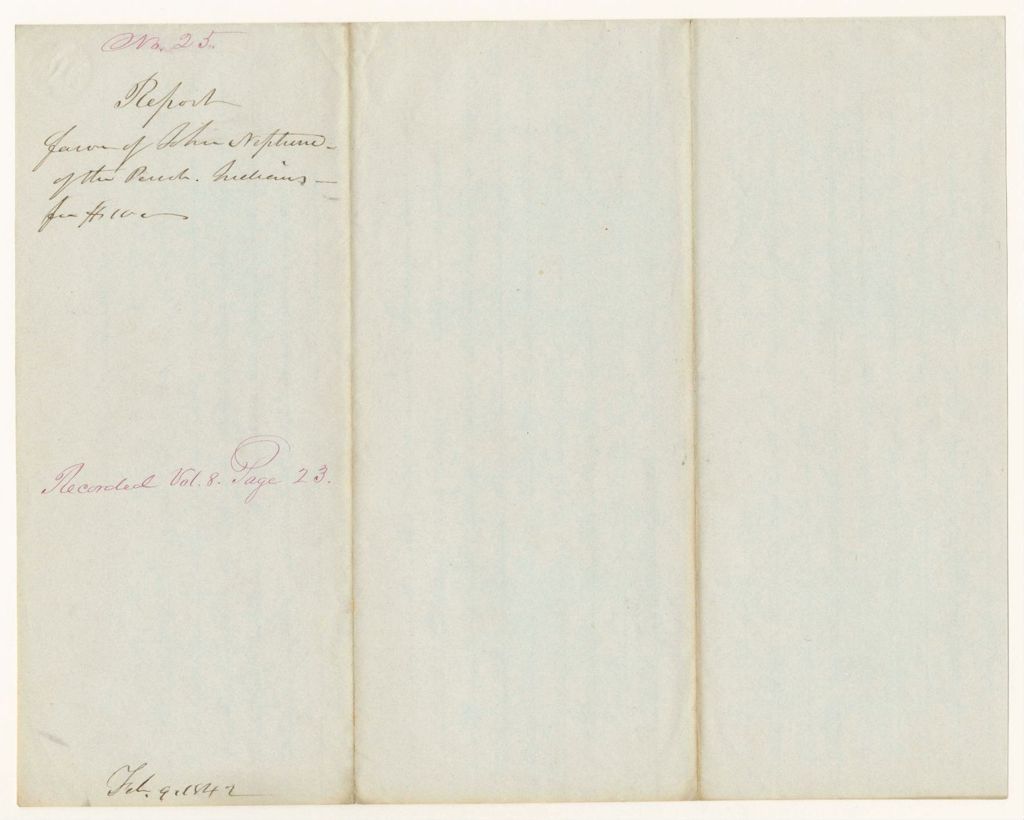 No. 25.
Report
favor of John Neptune -
of the Penob. Indians -
for $100
Recorded Vol. 8. Page 23.
Feb. 9. 1842